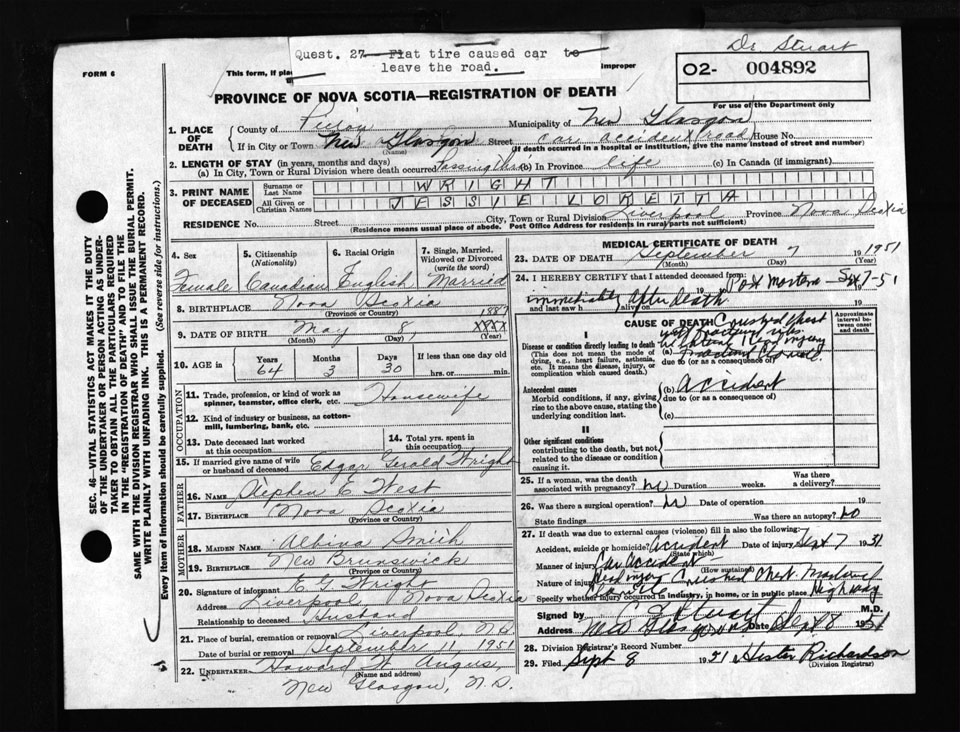 Quest. 27 Flat tire caused car to
leave the road.
Dr Stuart
FORM 6
This form, if plac
improper
O2- 004892
PROVINCE OF NOVA SCOTIA—REGISTRATION OF DEATH
For use of the Department only
1. PLACE OF DEATH
County of Pictou Municipality of New Glasgow
If in City or Town New Glasgow (Name) Street car accident (road) House No.
(If death occurred in a hospital or institution, give the name instead of street and number)
2. LENGTH OF STAY (in years, months and days)
(a) In City, Town or Rural Division where death occurred Passing thru (b) In Province life (c) In Canada (if immigrant)
3. PRINT NAME OF DECEASED
Surname or Last Name WRIGHT
All Given or Christian Names JESSIE LORETTA
RESIDENCE No. Street City, Town or Rural Division Liverpool Province Nova Scotia
(Residence means usual place of abode. Post Office Address for residents in rural parts not sufficient)
4. Sex Female
5. Citizenship (Nationality) Canadian
6. Racial Origin English
7. Single, Married, Widowed or Divorced (write the word) Married
8. BIRTHPLACE Nova Scotia
(Province or Country)
9. DATE OF BIRTH May 8 1887
(Month) (Day)
10. AGE in Years 64 Months 3 Days 30 If less than one day old hrs. or min.
OCCUPATION
11. Trade, profession, or kind of work as spinner, teamster, office clerk, etc. Housewife
12. Kind of industry or business, as cotton-mill, lumbering, bank, etc.
13. Date deceased last worked at this occupation
14. Total yrs. spent in this occupation
15. If married give name of wife or husband of deceased Edgar Gerald Wright
FATHER
16. NAME Stephen E West
17. BIRTHPLACE Nova Scotia
(Province or Country)
MOTHER
18. MAIDEN NAME Albina Smith
19. BIRTHPLACE New Brunswick
(Province or Country)
20. Signature of informant E G Wright
Address Liverpool, Nova Scotia
Relationship to deceased Husband
21. Place of burial, cremation or removal Liverpool, N.S.
Date of burial or removal September 11, 1951
22. UNDERTAKER Howard W. Angus,
(Name and address)
New Glasgow, N.S.
MEDICAL CERTIFICATE OF DEATH
23. DATE OF DEATH September 7 1951
(Month) (Day)
24. I HEREBY CERTIFY that I attended deceased from: Post Mortem Sept 7-51
immediately after death
and last saw h alive on 19
CAUSE OF DEATH Crushed Chest
Approximate interval between onset and death
I
Disease or condition directly leading to death
(This does not mean the mode of dying, e.g., heart failure, asthenia, etc. It means the disease, injury, or complication which caused death.)
(a)
due to (or as a consequence of)
Antecedent causes
Morbid conditions, if any, giving rise to the above cause, stating the underlying condition last.
(b) Accident
due to (or as a consequence of)
(c)
II
Other significant conditions contributing to the death, but not related to the disease or condition causing it.
25. If a woman, was the death associated with pregnancy? no Duration weeks. Was there a delivery?
26. Was there a surgical operation? no Date of operation 19
State findings Was there an autopsy? no
27. If death was due to external causes (violence) fill in also the following:
Accident, suicide or homicide? Accident Date of injury Sept 7 1951
(State which)
Manner of injury Car Accident
(How sustained)
Nature of injury Head injury Crushed Chest.
Specify whether injury occurred in industry, in home, or in public place Highway
Signed by C S Stuart M.D.
Address New Glasgow NS Date Sept 8 1951
28. Division Registrar's Record Number
29. Filed Sept 8 1951 Hester Richardson
(Division Registrar)
SEC. 46—VITAL STATISTICS ACT MAKES IT THE DUTY
OF THE UNDERTAKER OR PERSON ACTING AS UNDER-
TAKER TO OBTAIN ALL THE PARTICULARS REQUIRED
IN THE "REGISTRATION OF DEATH" AND TO FILE THE
SAME WITH THE DIVISION REGISTRAR WHO SHALL ISSUE THE BURIAL PERMIT.
WRITE PLAINLY WITH UNFADING INK. THIS IS A PERMANENT RECORD.
Every item of information should be carefully supplied. (See reverse side for instructions.)